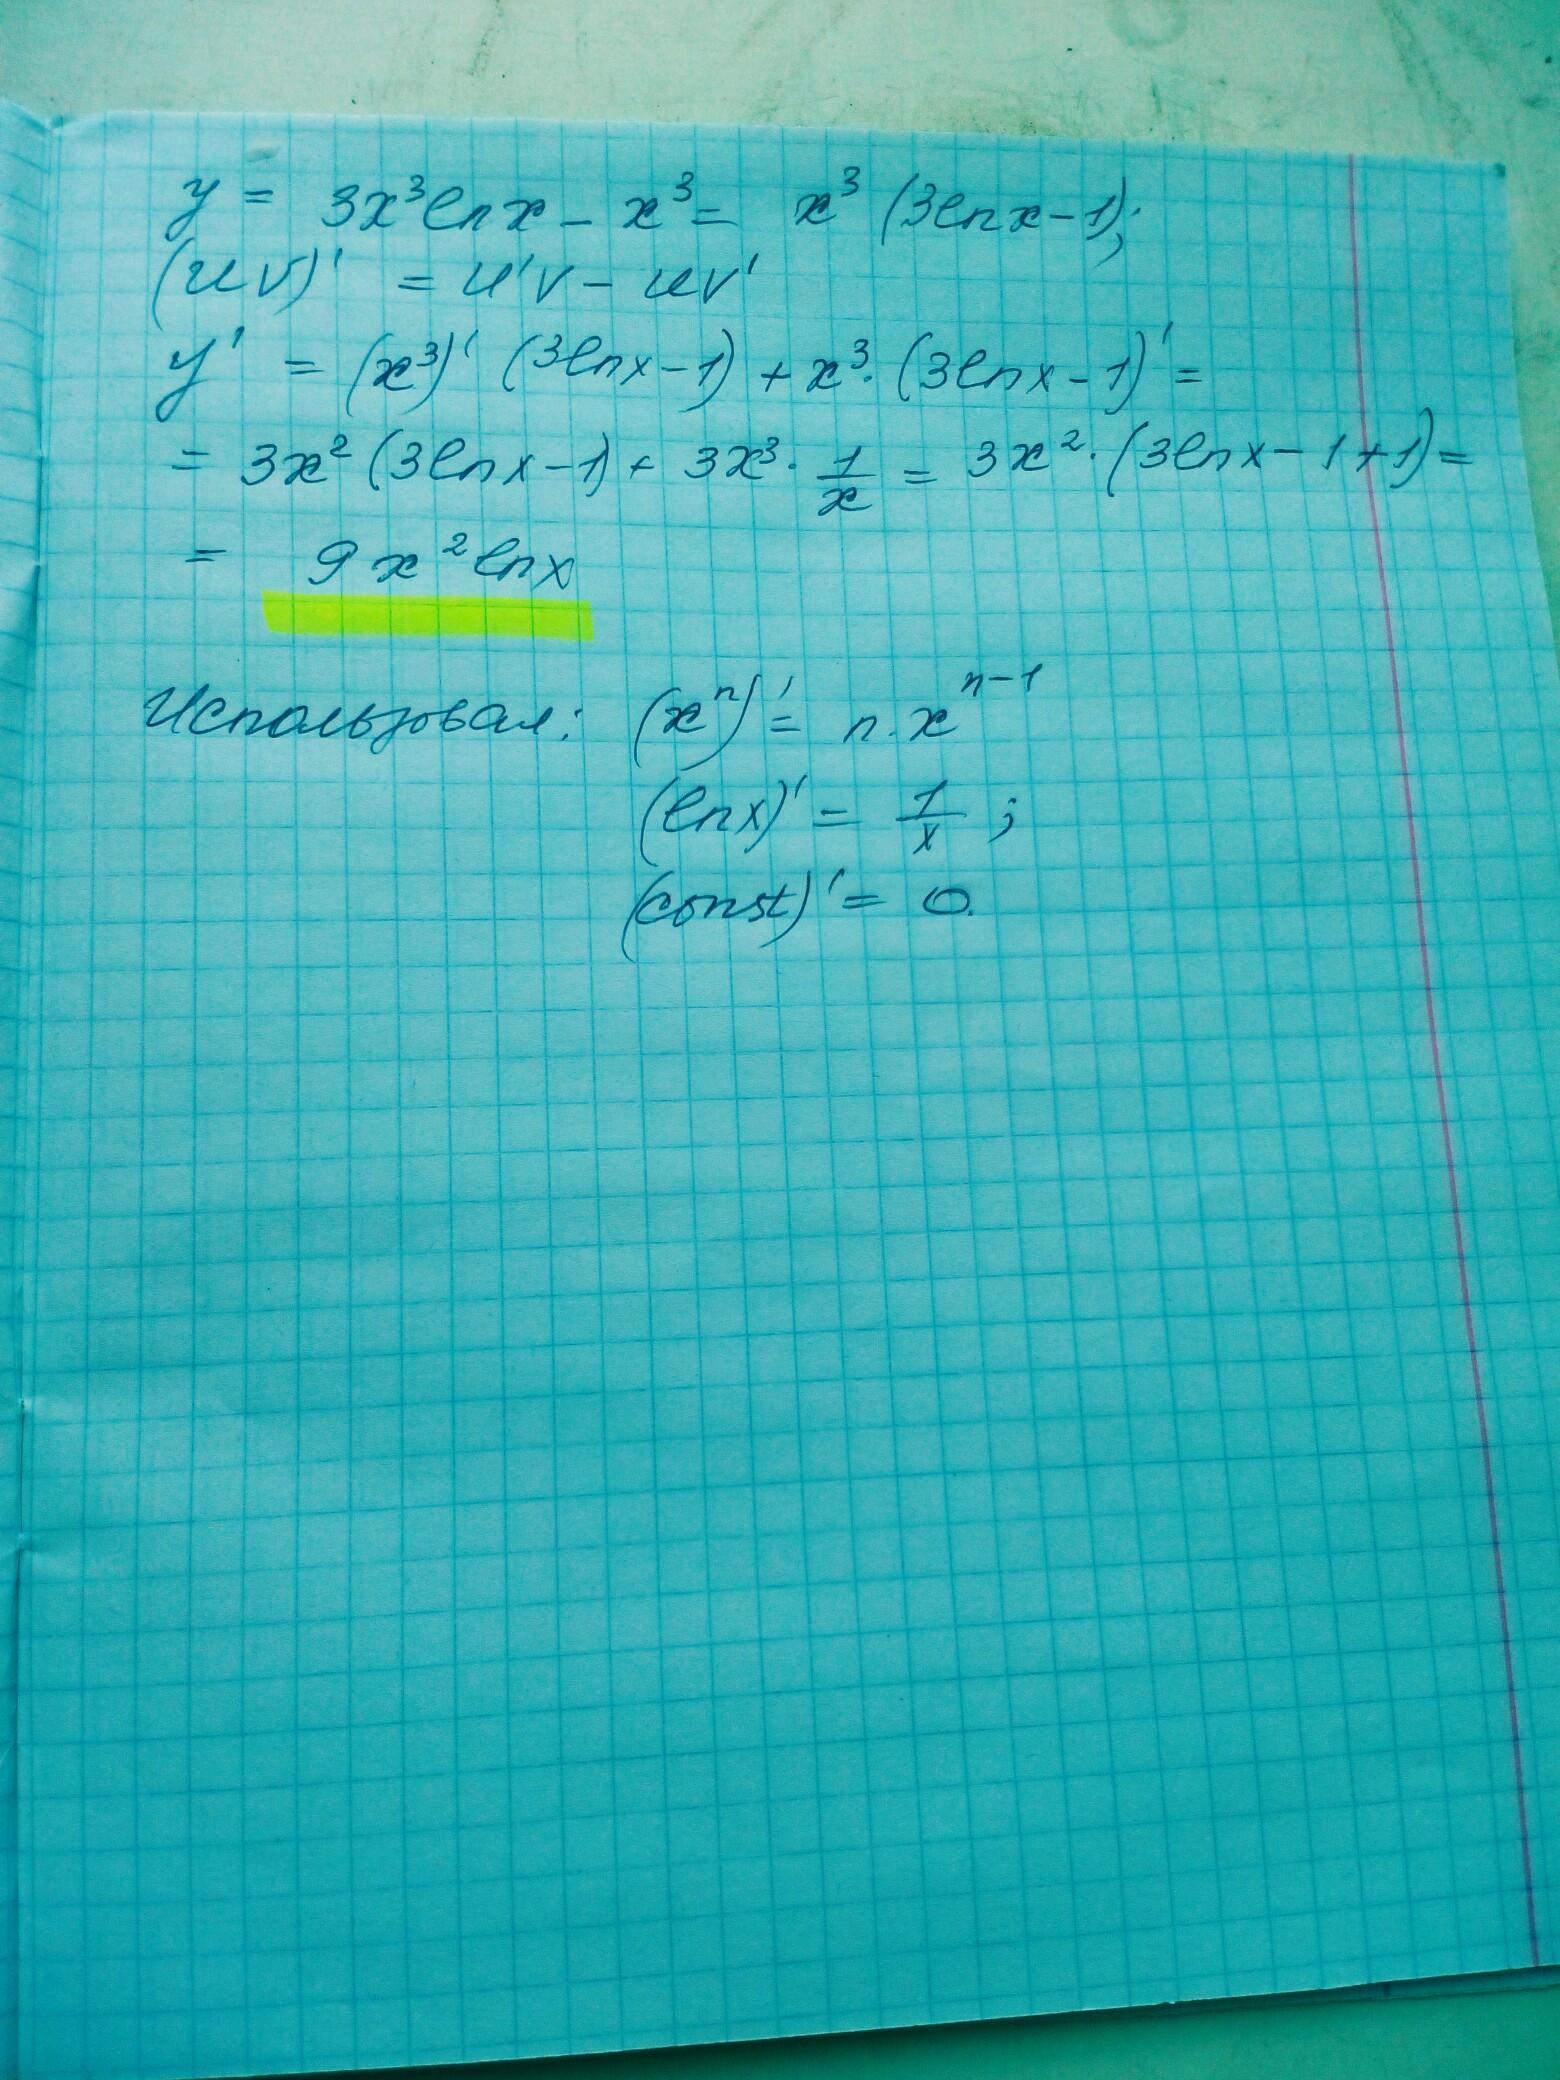 y = 3x³lnx - x³ = x³ (3lnx - 1);
(uv)' = u'v - uv'
y' = (x³)' (3lnx - 1) + x³· (3lnx - 1)' =
= 3x² (3lnx - 1) + 3x³ · 1/x = 3x² · (3lnx - 1 + 1) =
= 9x² lnx
Использовал: (xⁿ)' = n · xⁿ⁻¹
(lnx)' = 1/x ;
(const)' = 0.